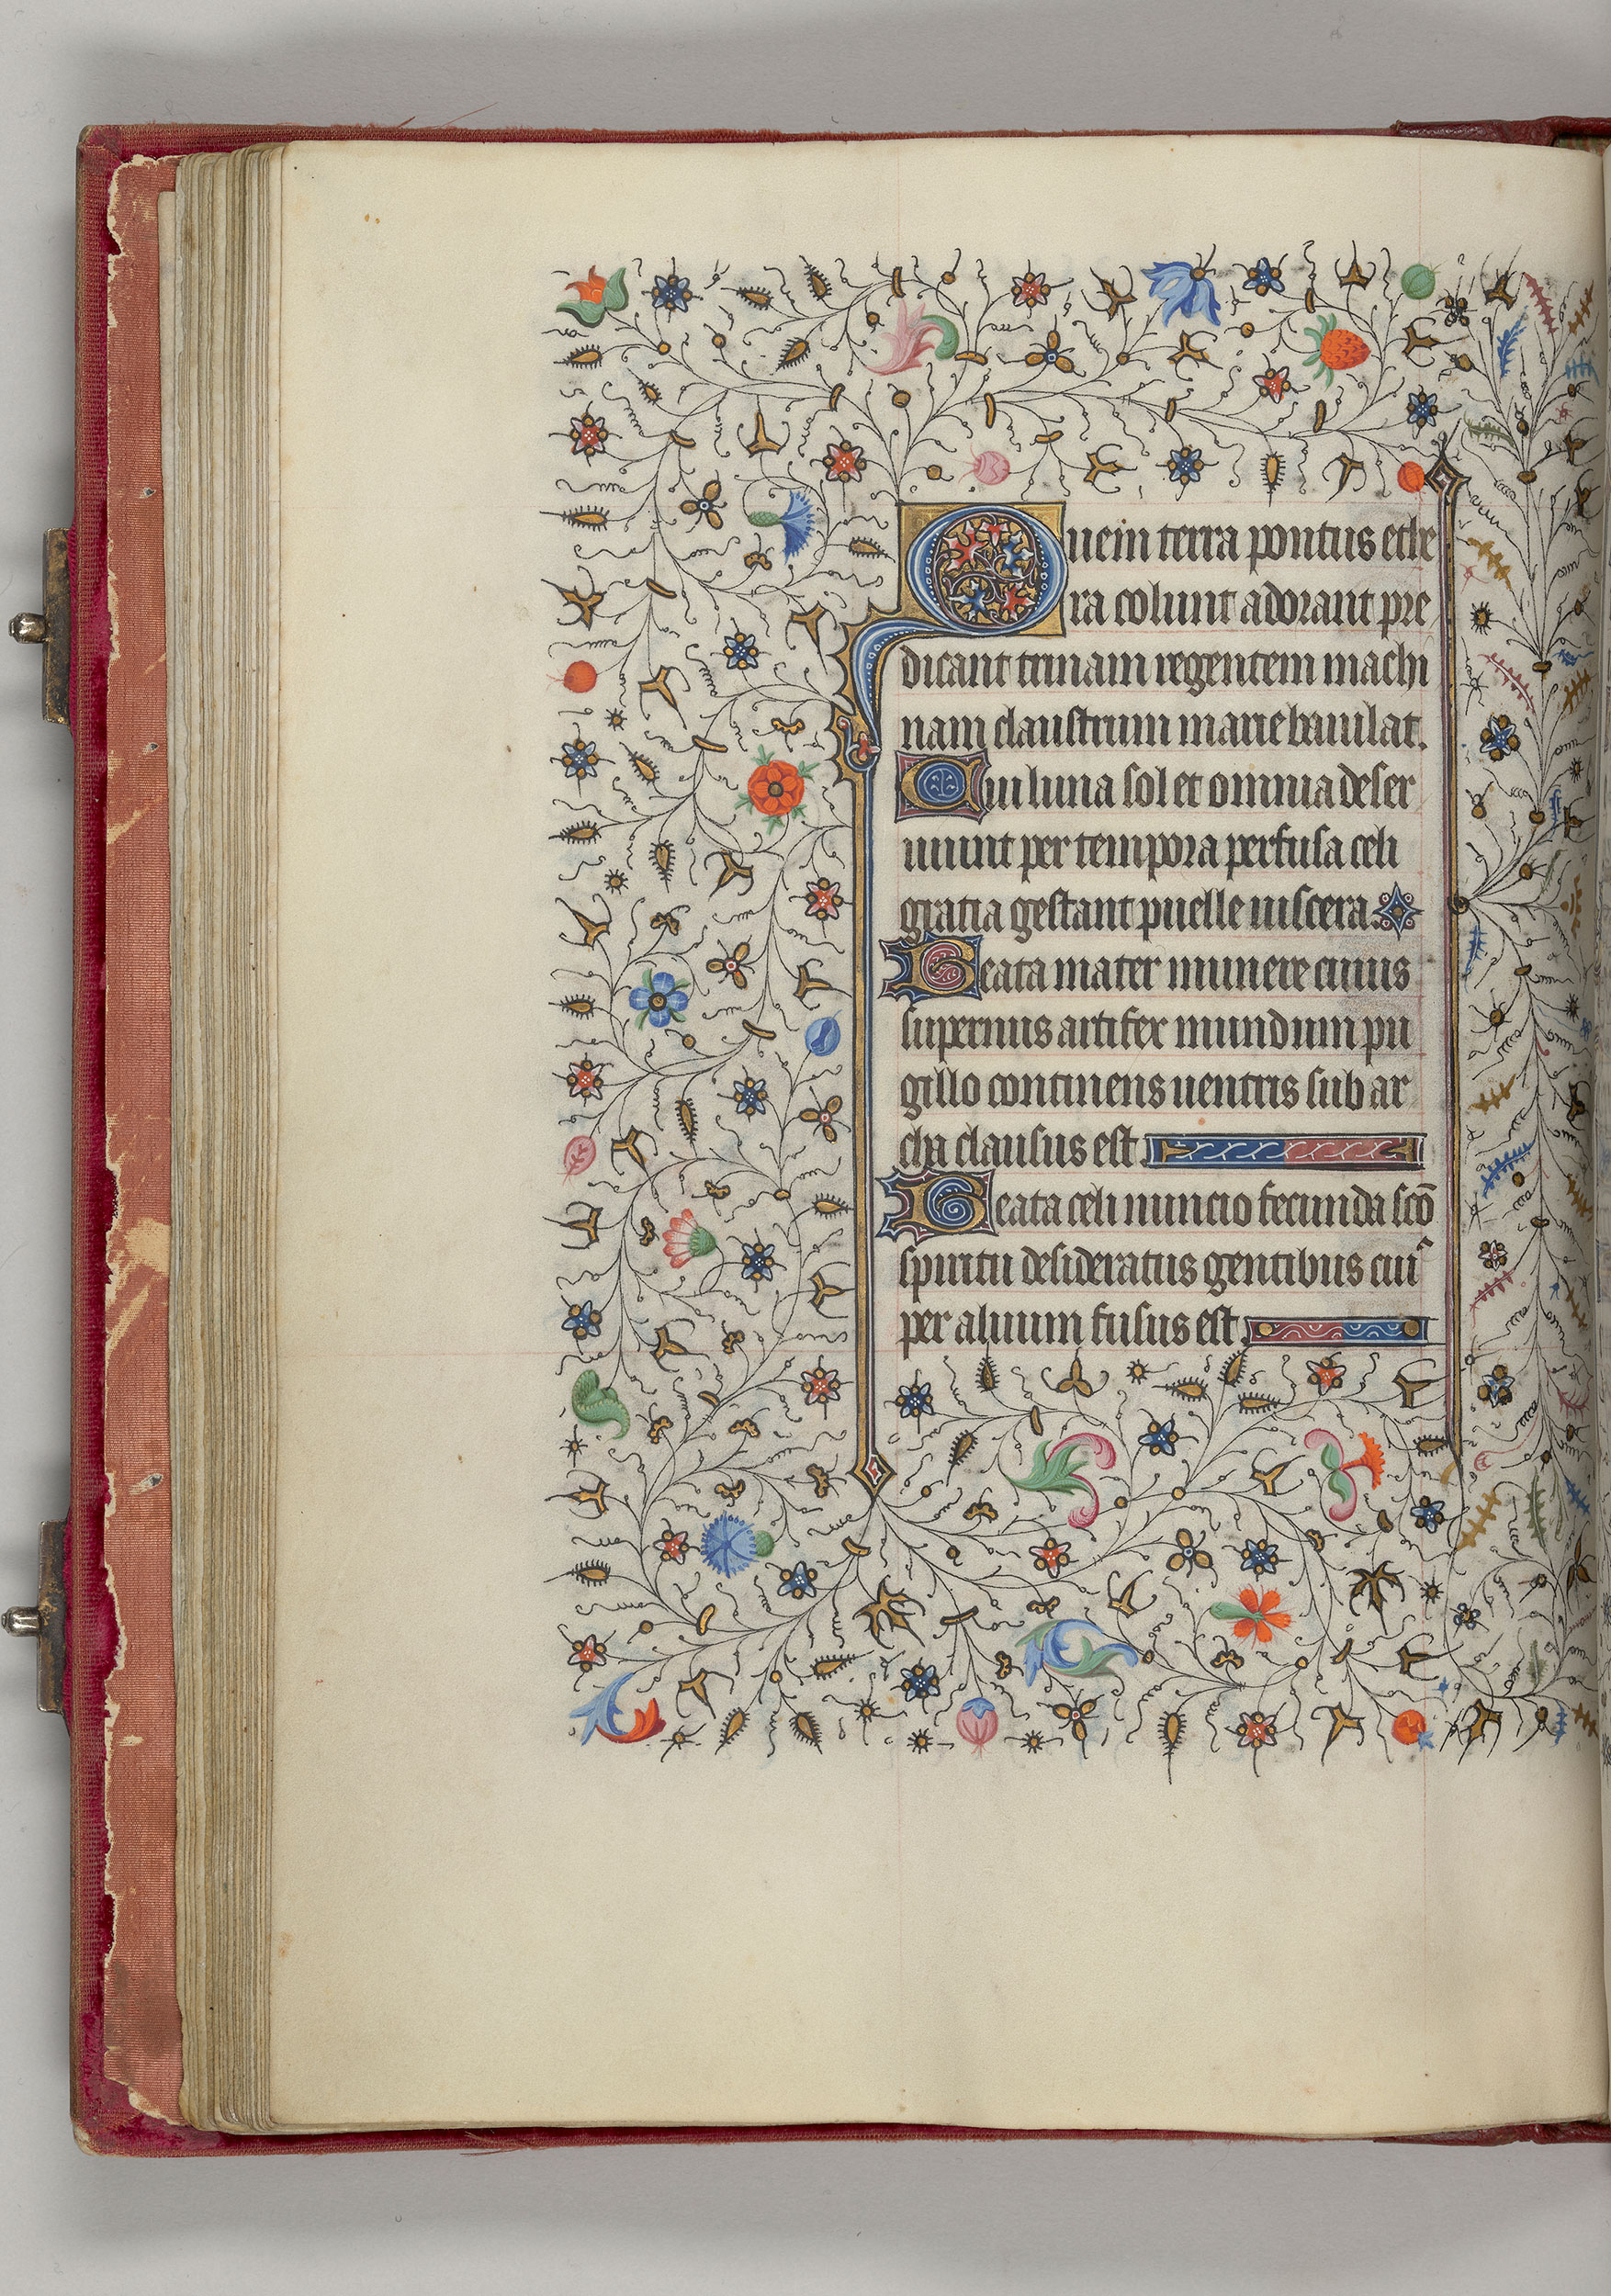 Quem terra pontus ethe
ra colunt adorant pre
dicant trinam regentem machi
nam claustrum marie baiulat.
Cui luna sol et omnia deser
uiunt per tempora perfusa celi
gratia gestant puelle uiscera.
Beata mater munere cuius
supernus artifex mundum pu
gillo continens uentris sub ar
cha clausus est.
Beata celi nuncio fecunda sco̅
spiritu desideratus gentibus cuiꝰ
per aluum fusus est.